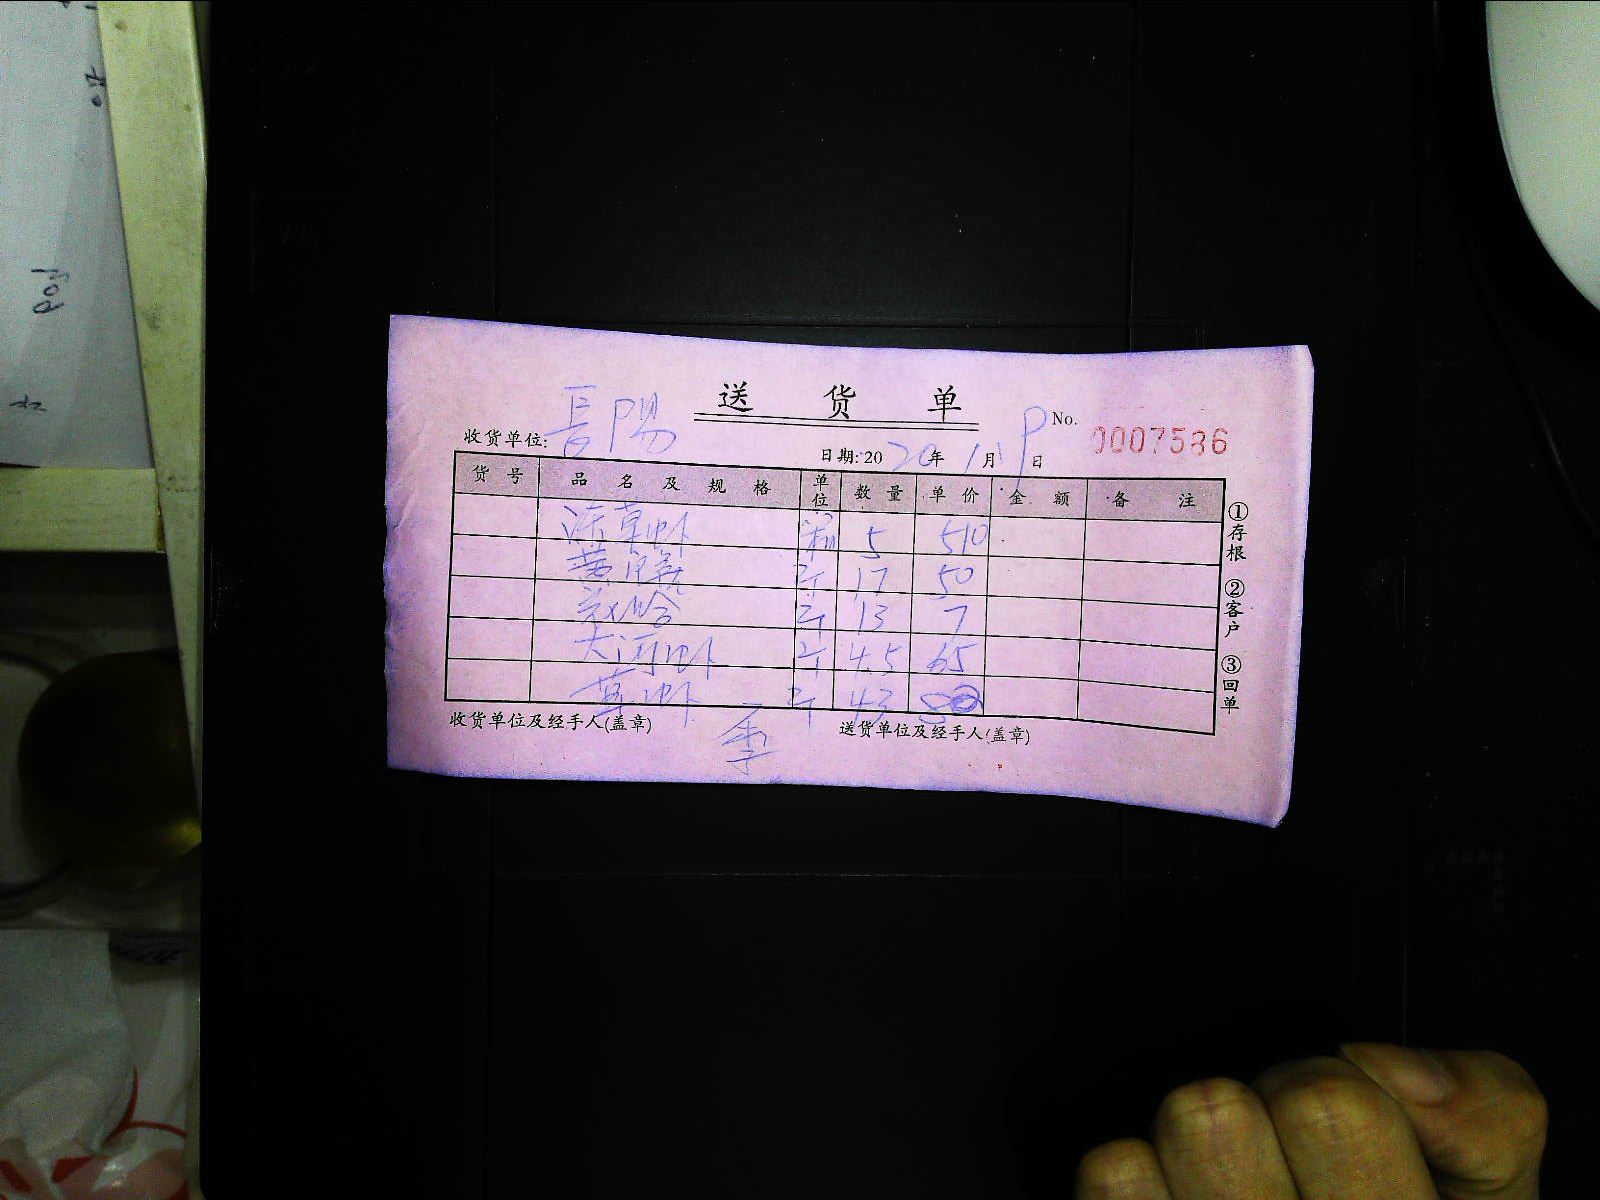 送货单
No. 0007536
收货单位: 長陽
日期: 2020年 11月 9日
货号 品名及规格 单位 数量 单价 金额 备注
冻草虾 箱 5 510
黄 斤 17 50
花蛤 斤 13 7
大河虾 斤 4.5 65
草虾 斤 43
收货单位及经手人(盖章) 李 送货单位及经手人(盖章)
①存根 ②客户 ③回单